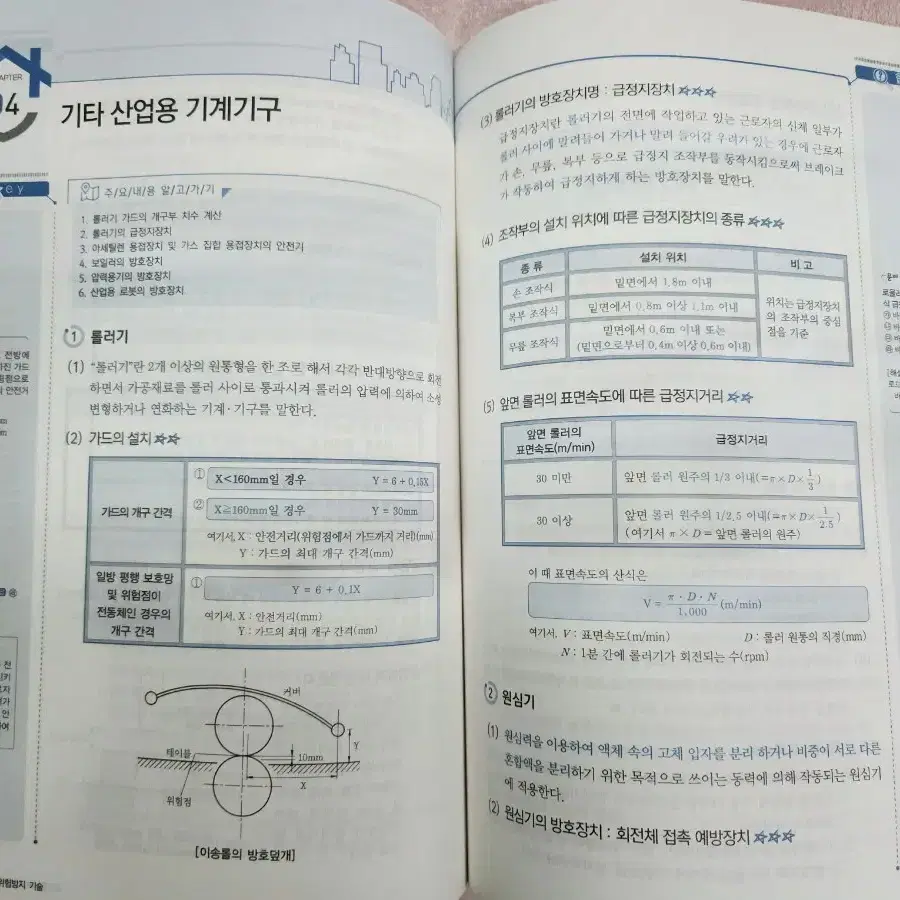 APTER
04
기타 산업용 기계기구
ey
주/요/내/용 알/고/가/기
1. 롤러기 가드의 개구부 치수 계산
2. 롤러기의 급정지장치
3. 아세틸렌 용접장치 및 가스 집합 용접장치의 안전기
4. 보일러의 방호장치
5. 압력용기의 방호장치
6. 산업용 로봇의 방호장치
1 롤러기
(1) “롤러기”란 2개 이상의 원통형을 한 조로 해서 각각 반대방향으로 회전
하면서 가공재료를 롤러 사이로 통과시켜 롤러의 압력에 의하여 소성
변형하거나 연화하는 기계·기구를 말한다.
(2) 가드의 설치 ☆☆
가드의 개구 간격
① X<160mm일 경우 Y = 6 + 0.15X
② X≧160mm일 경우 Y = 30mm
여기서, X : 안전거리(위험점에서 가드까지 거리)(mm)
Y : 가드의 최대 개구 간격(mm)
일방 평행 보호망
및 위험점이
전동체인 경우의
개구 간격
① Y = 6 + 0.1X
여기서, X : 안전거리(mm)
Y : 가드의 최대 개구 간격(mm)
커버
테이블
10mm
Y
X
위험점
[이송롤의 방호덮개]
위험방지 기술
(3) 롤러기의 방호장치명 : 급정지장치 ☆☆☆
급정지장치란 롤러기의 전면에 작업하고 있는 근로자의 신체 일부가
롤러 사이에 말려들어 가거나 말려 들어갈 우려가 있는 경우에 근로자
가 손, 무릎, 복부 등으로 급정지 조작부를 동작시킴으로써 브레이크
가 작동하여 급정지하게 하는 방호장치를 말한다.
(4) 조작부의 설치 위치에 따른 급정지장치의 종류 ☆☆☆
종 류 설치 위치 비 고
손 조작식 밑면에서 1.8m 이내
복부 조작식 밑면에서 0.8m 이상 1.1m 이내
무릎 조작식 밑면에서 0.6m 이내 또는
(밑면으로부터 0.4m 이상 0.6m 이내)
위치는 급정지장치
의 조작부의 중심
점을 기준
(5) 앞면 롤러의 표면속도에 따른 급정지거리 ☆☆
앞면 롤러의
표면속도(m/min)
급정지거리
30 미만 앞면 롤러 원주의 1/3 이내(=π×D×1/3)
30 이상 앞면 롤러 원주의 1/2.5 이내(=π×D×1/2.5)
(여기서 π×D = 앞면 롤러의 원주)
이 때 표면속도의 산식은
V = π·D·N/1,000 (m/min)
여기서, V : 표면속도(m/min) D : 롤러 원통의 직경(mm)
N : 1분 간에 롤러기가 회전되는 수(rpm)
2 원심기
(1) 원심력을 이용하여 액체 속의 고체 입자를 분리 하거나 비중이 서로 다른
혼합액을 분리하기 위한 목적으로 쓰이는 동력에 의해 작동되는 원심기
에 적용한다.
(2) 원심기의 방호장치 : 회전체 접촉 예방장치 ☆☆☆